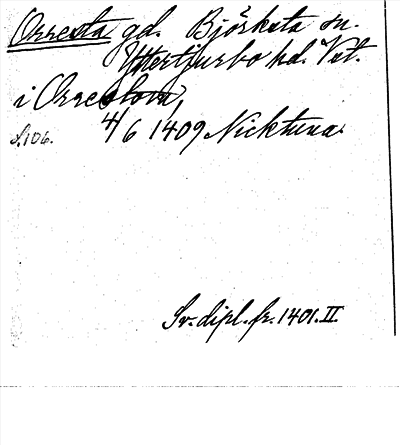 Orresta gd. Björksta sn.
Yttertjurbo hd. Vst.
i Orrestom,
4/6 1409 Nicktuna.
S.106.
Sv. dipl. fr. 1401. II.